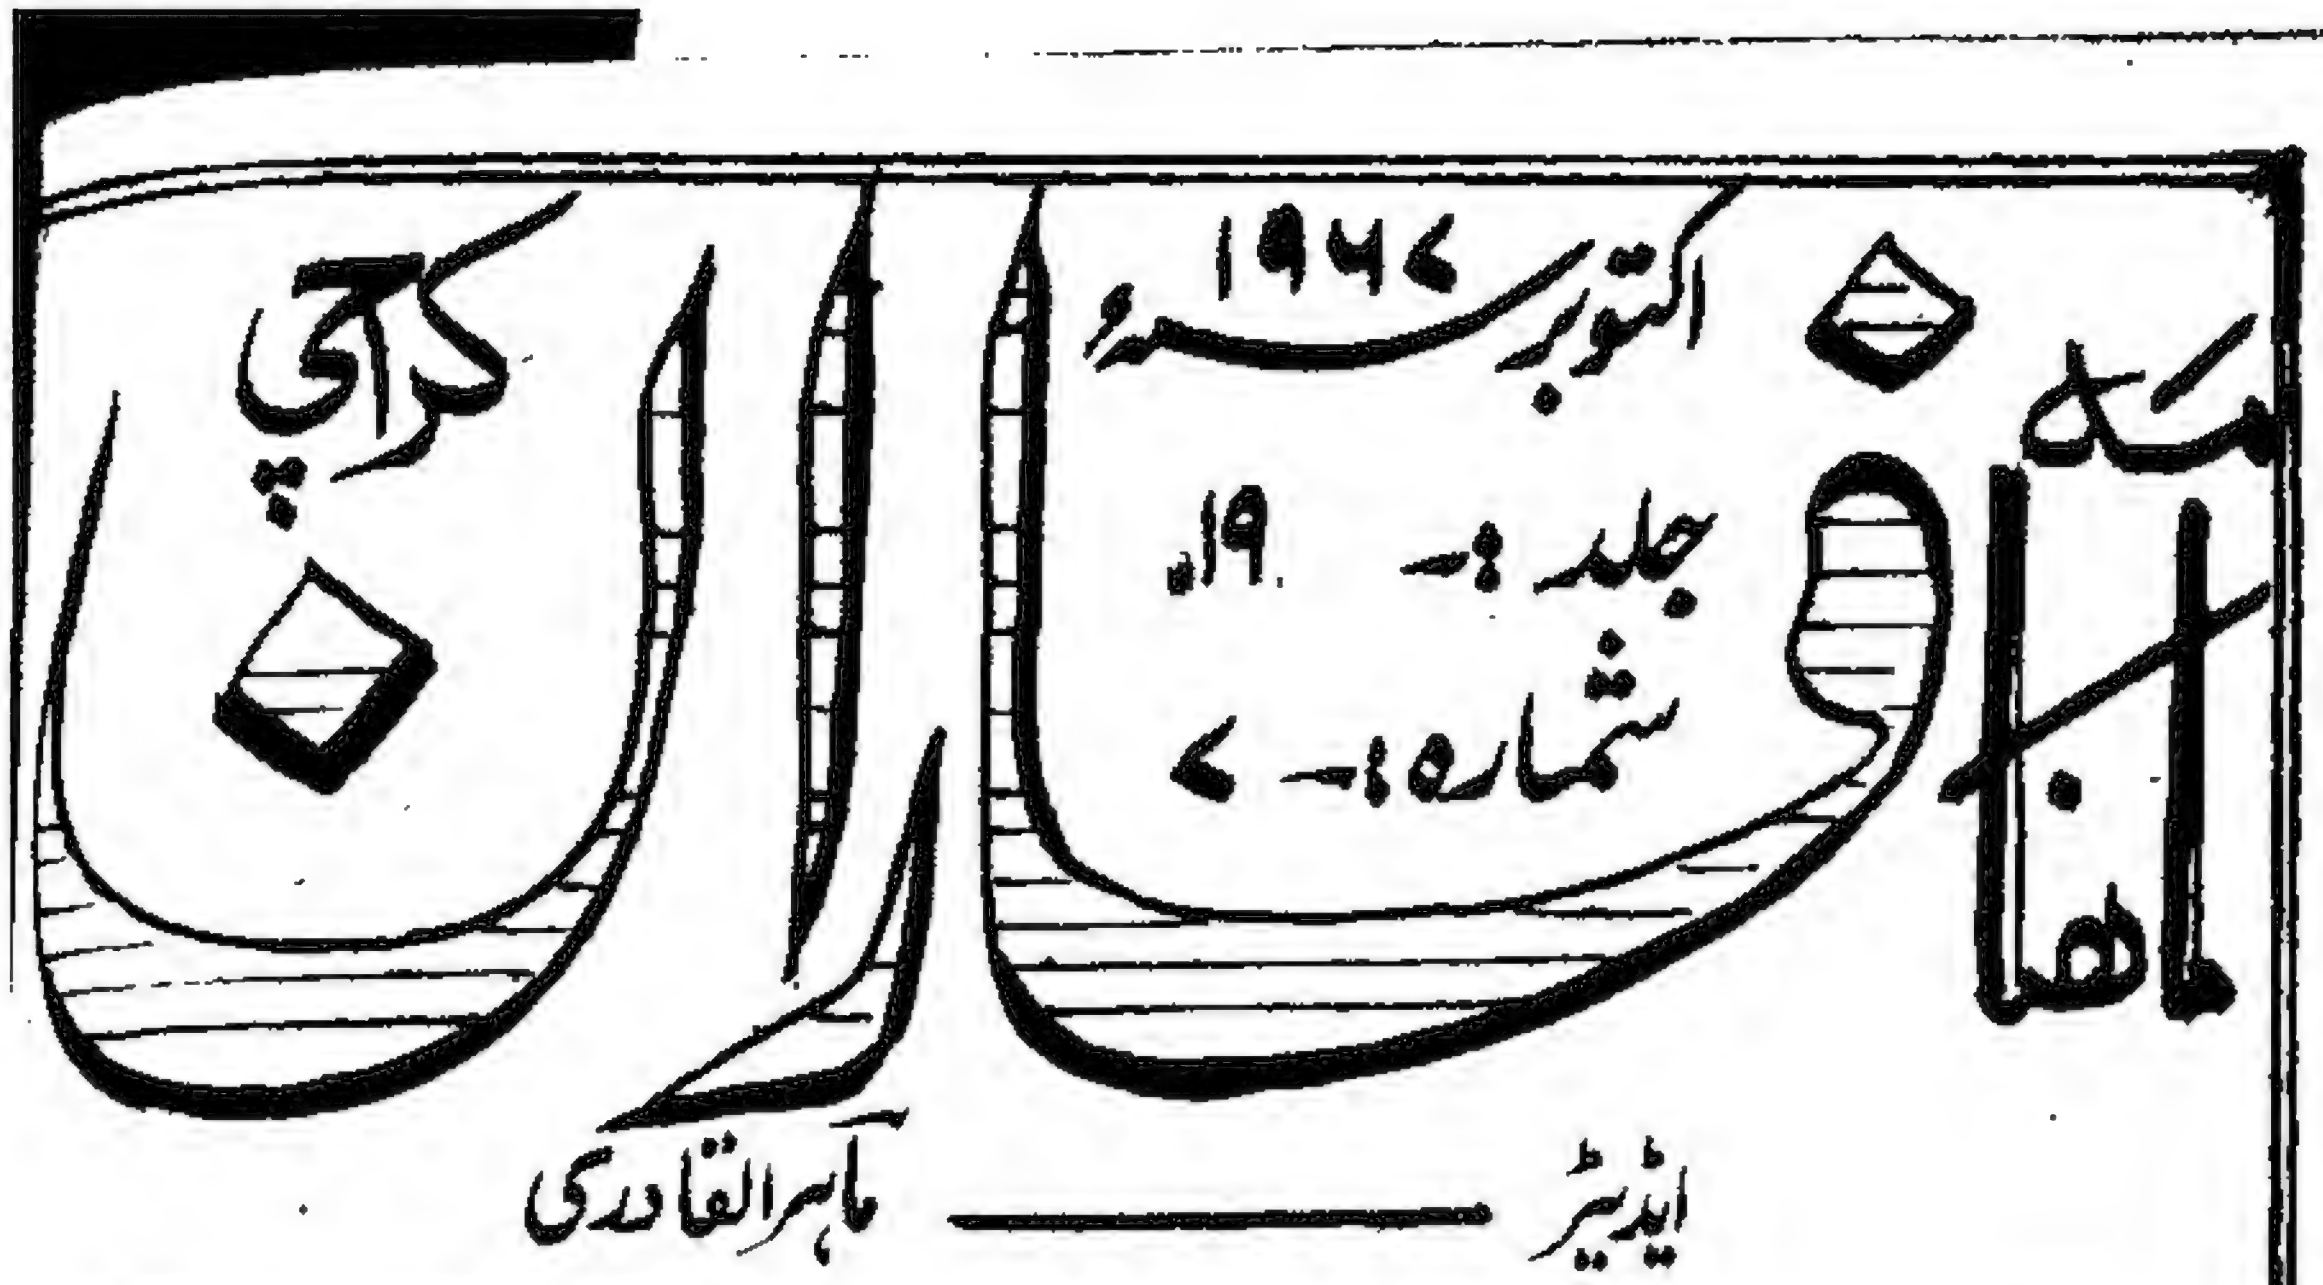 ماهنامه
فاران
کراچی
اکتوبر ۱۹۶۷ء
جلد :- ۱۹
شماره :- ۷
ایڈیٹر ــــــــ ماہر القادری